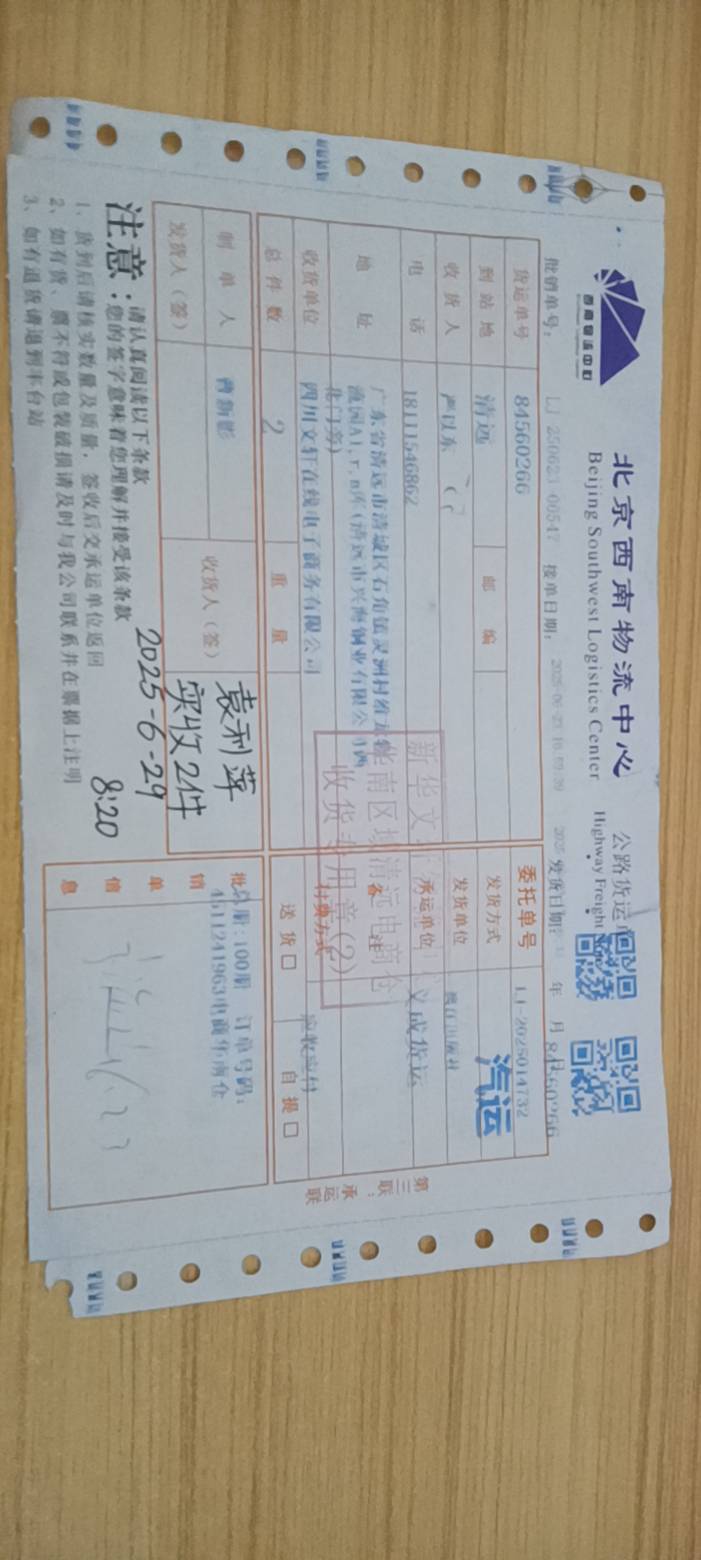 北京西南物流中心 公路货运
Beijing Southwest Logistics Center Highway Freight
西南物流中心
批销单号: LJ 250623 00547 接单日期: 2025-06-23 发货日期: 年 月
货运单号 84560266 委托单号 LJ-2025014732
84560266
到站地 清远 邮编 发货方式 汽运
收货人 严以东 发货单位
电话 18111546862 承运单位 义成货运
地址 广东省清远市清城区石角镇灵洲村
北门旁)
收货单位 四川文轩在线电子商务有限公司 付费方式 应收应付
总件数 2 重量 送货□ 自提□
新华文
华南区域清远电商仓
收货专用章(2)
制单人 曹新影 收货人(签) 袁利萍
发货人(签) 实收2件
2025-6-29
8:20
批销单信息
总册:100册 订单号码:
4511241963电商华南仓
第三联:承运联
注意:
请认真阅读以下条款
您的签字意味着您理解并接受该条款
1、货到后请核实数量及质量,签收后交承运单位返回
2、如有货、票不符或包装破损请及时与我公司联系并在票据上注明
3、如有退货请退到丰台站